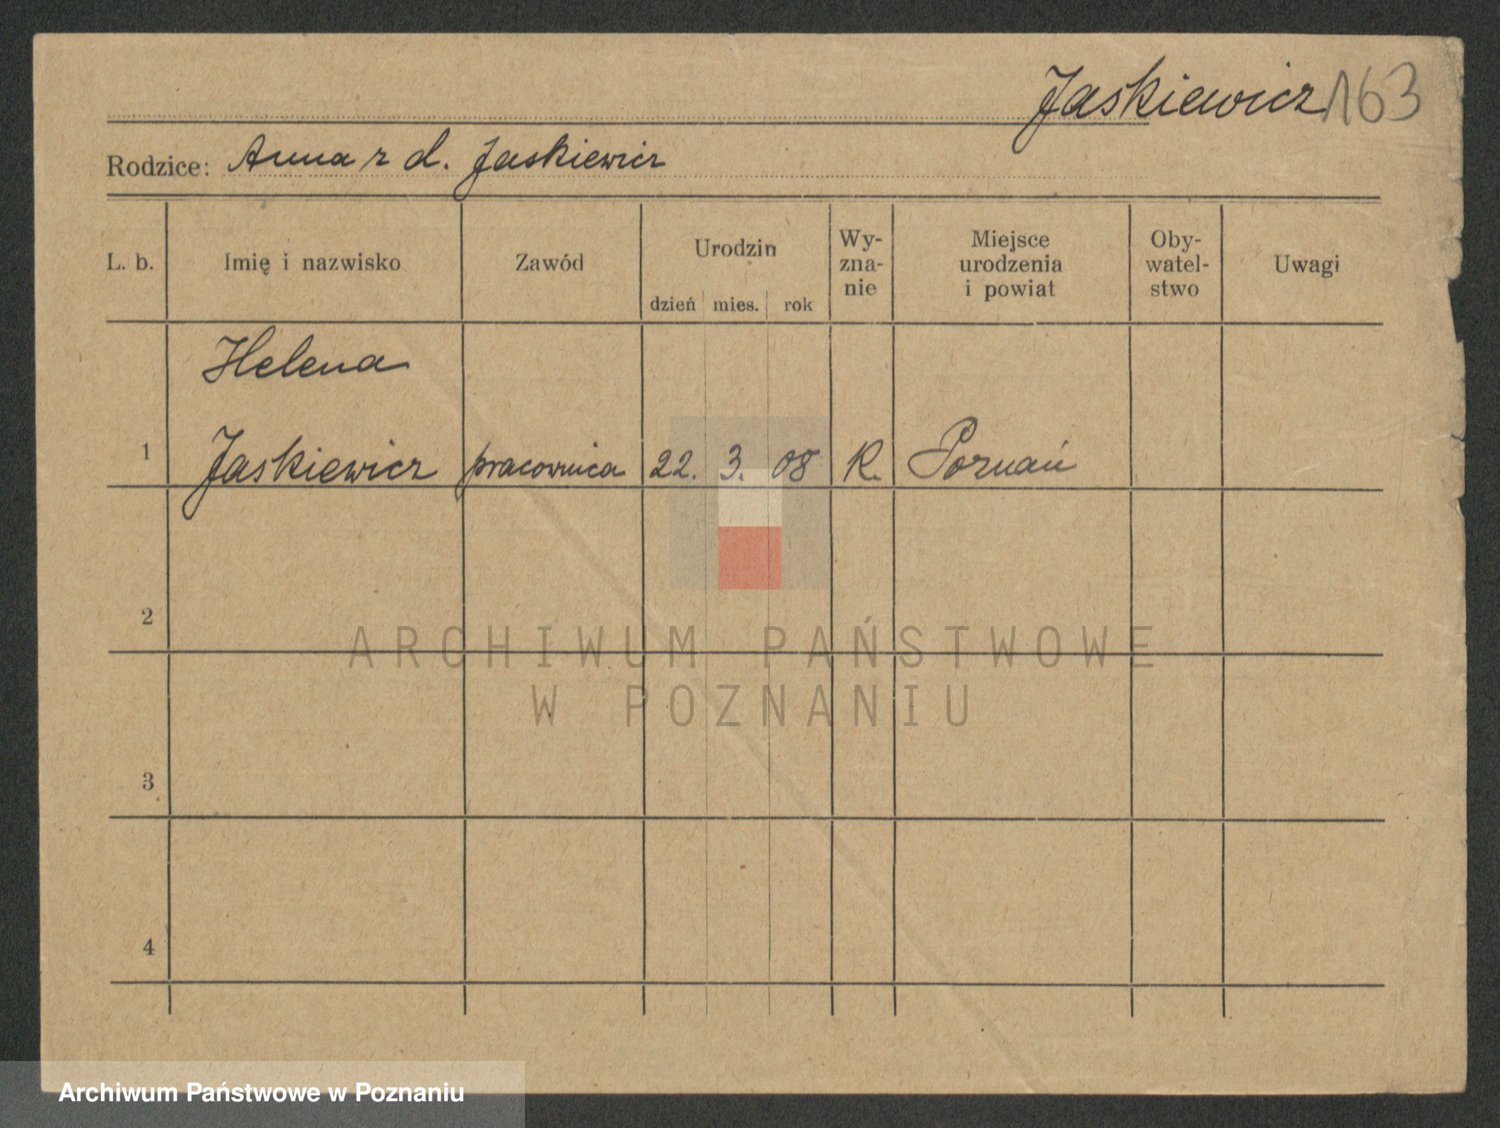 Jaskiewicz 163
Rodzice: Anna z d. Jaskiewicz
L. b. Imię i nazwisko Zawód Urodzin dzień mies. rok Wy-
zna-
nie Miejsce
urodzenia
i powiat Oby-
watel-
stwo Uwagi
Helena
1 Jaskiewicz pracownica 22. 3. 08 R. Poznań
2
ARCHIWUM PAŃSTWOWE
W POZNANIU
3
4
Archiwum Państwowe w Poznaniu